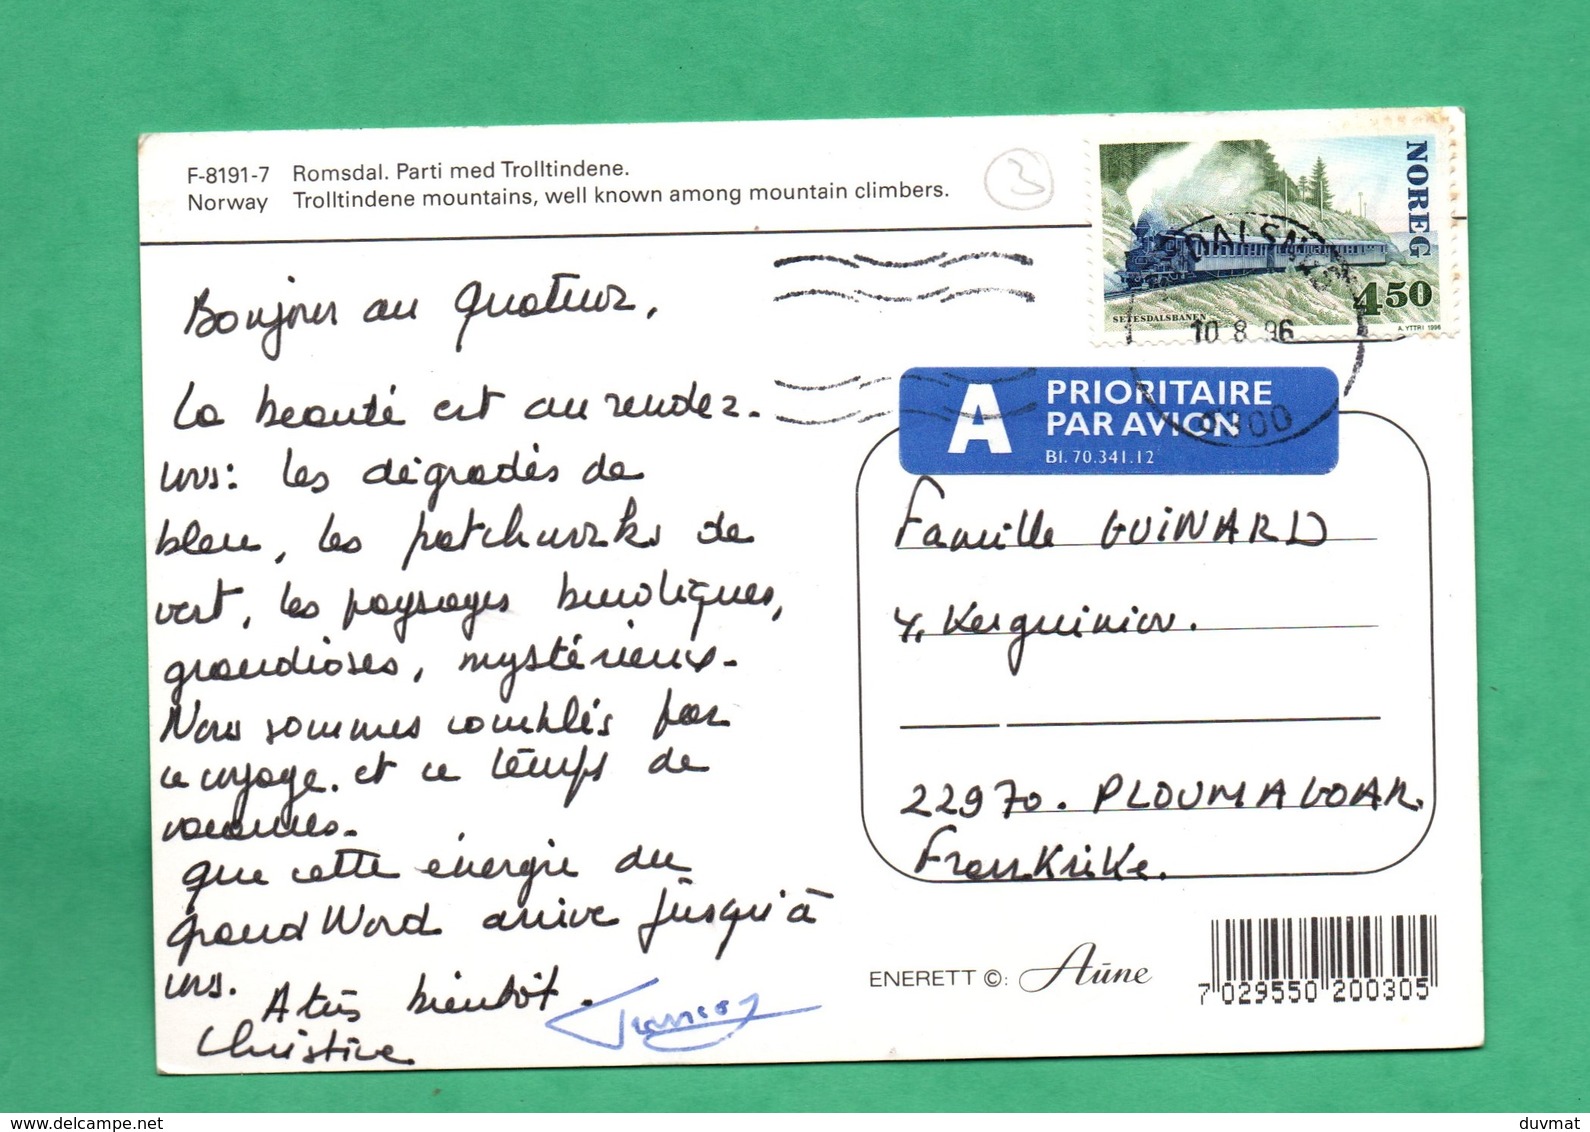 F-8191-7 Romsdal. Parti med Trolltindene.
Norway Trolltindene mountains, well known among mountain climbers.
3
NOREG
450
SETESDALSBANEN
A. YTTRI 1996
10.8.96
A PRIORITAIRE
PAR AVION
Bl. 70.341.12
Bonjour au quatuor,
La beauté est au rendez-
vous: les dégradés de
bleu, les patchworks de
vert, les paysages bucoliques,
grandioses, mystérieux.
Nous sommes comblés par
ce voyage. et ce temps de
vacances.
que cette énergie du
grand Nord arrive jusqu'à
vous.
A très bientôt.
Christine
Famille GUINARD
4, Kerguiniou.
22970. PLOUMAGOAR.
Frankrike.
ENERETT ©: Aūne
7 029550 200305
www.delcampe.net
duvmat